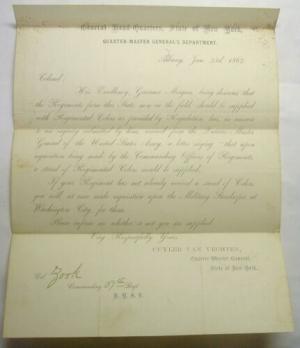 General Head-Quarters, State of New York,
QUARTER-MASTER GENERAL'S DEPARTMENT.
Albany, Jan. 23d, 1862.
Colonel:
His Excellency, Governor Morgan, being desirous that
the Regiments from this State now in the field should be supplied
with Regimental Colors as provided by Regulation, has, in answer
to an inquiry submitted by him, received from the Quarter-Master
General of the United States Army, a letter saying "that upon
requisition being made by the Commanding Officers of Regiments,
a stand of Regimental Colors would be supplied."
If your Regiment has not already received a stand of Colors
you will at once make requisition upon the Military Storekeeper at
Washington City for them.
Please inform me whether or not you are supplied.
Very Respectfully Yours,
CUYLER VAN VECHTEN,
Quarter-Master General,
State of New York.
Col. Zook
Commanding 57th Regt
N.Y.S.V.